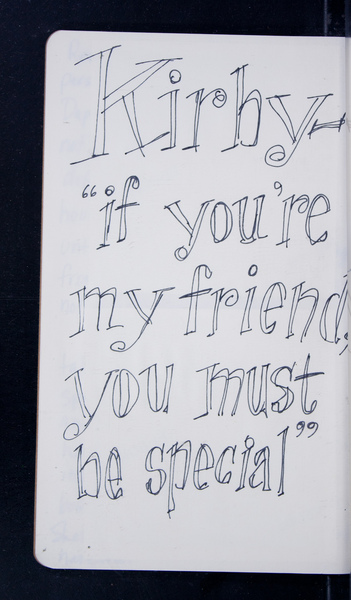 Kirby-
“if you're
my friend,
you must
be special”